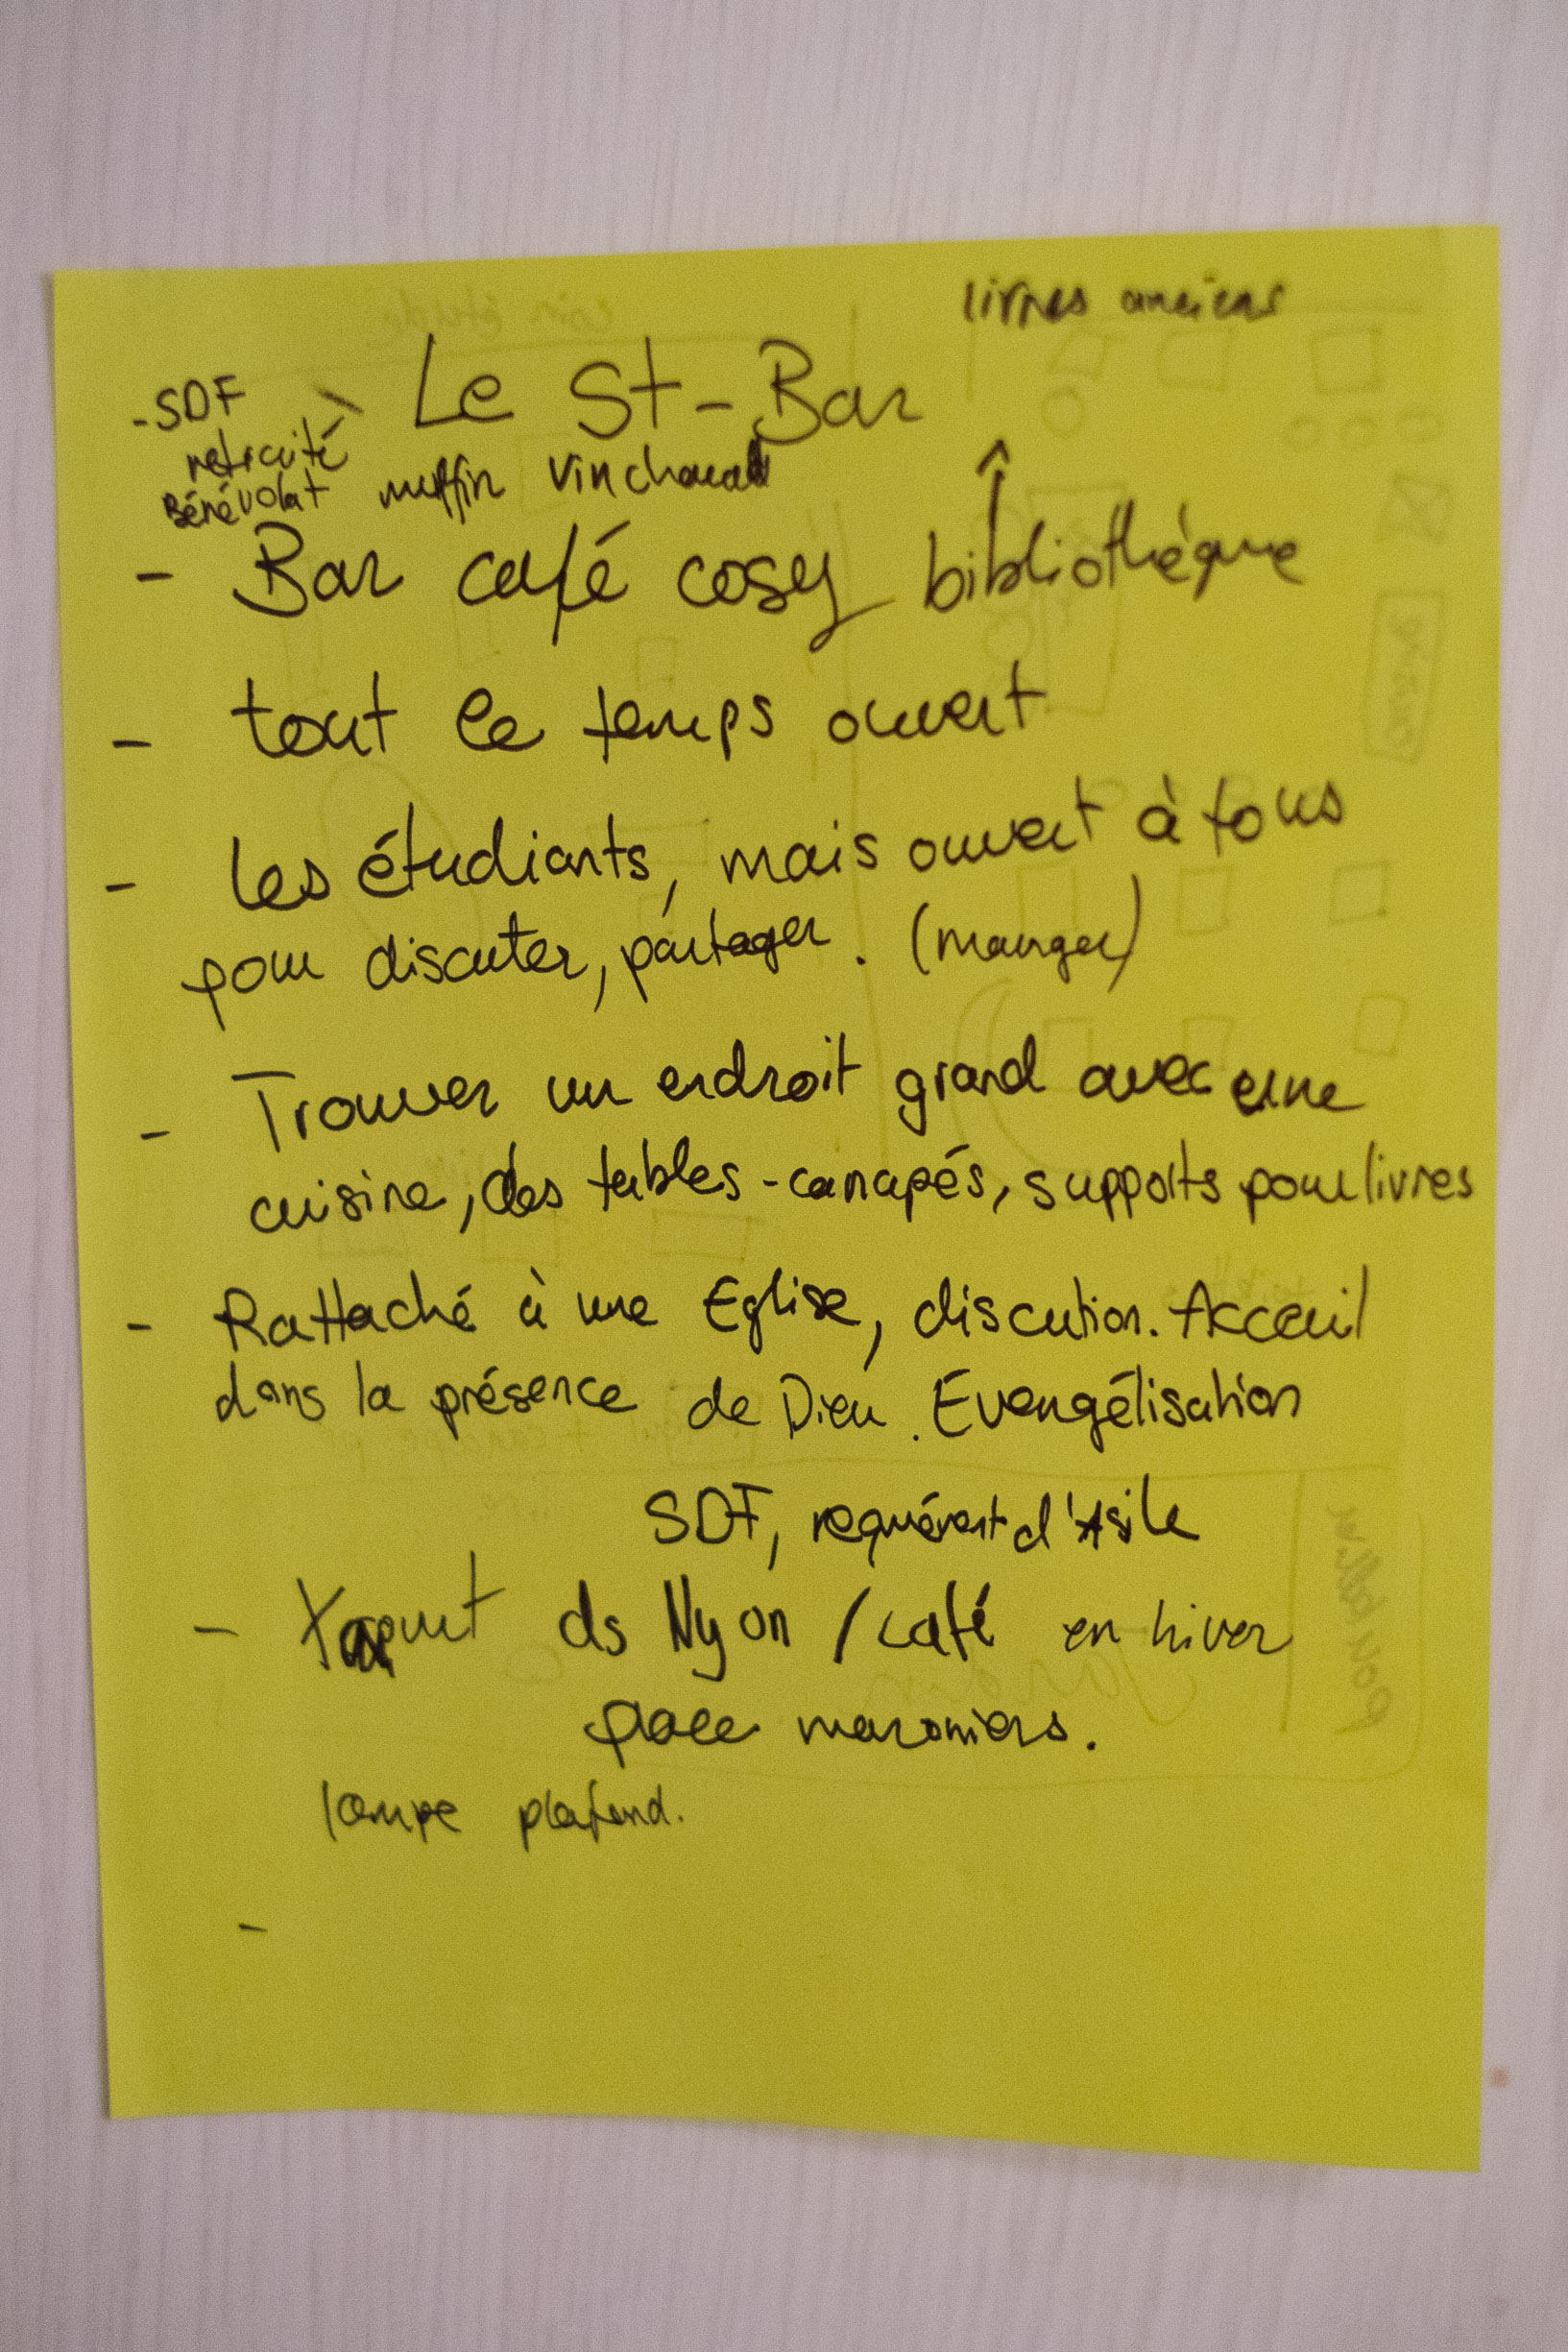 livres anciens
- SDF
Le St-Bar
retraité
Bénévolat
muffin vin chaud
- Bar café cosy bibliothèque
- tout le temps ouvert
- les étudiants, mais ouvert à tous
pour discuter, partager. (manger)
- Trouver un endroit grand avec une
cuisine, des tables-canapés, supports pour livres
- Rattaché à une Eglise, discution. Acceuil
dans la présence de Dieu. Evangélisation
SDF, requérant d'Asile
- ds Nyon / café en hiver
place maronniers.
lampe plafond.
-